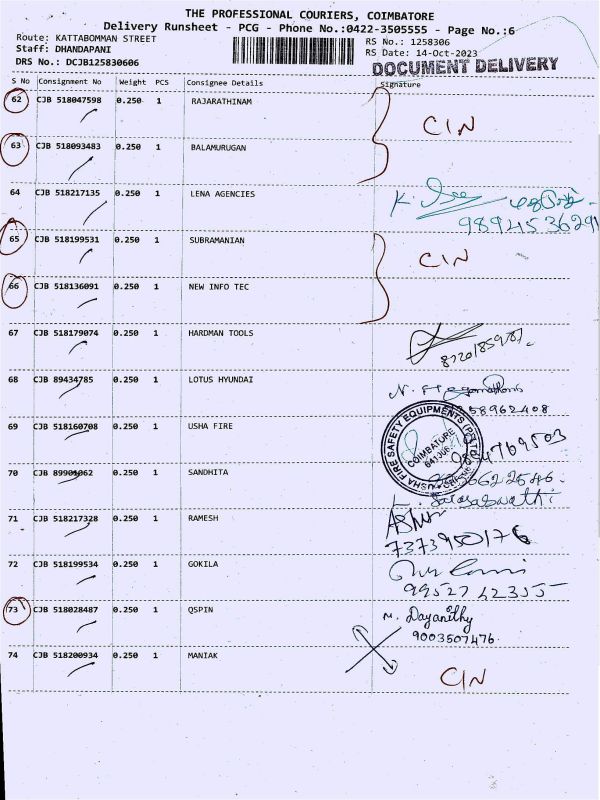 THE PROFESSIONAL COURIERS, COIMBATORE
Delivery Runsheet - PCG - Phone No.:0422-3505555 - Page No.:6
Route: KATTABOMMAN STREET
Staff: DHANDAPANI
DRS No.: DCJB125830606
RS No.: 1258306
RS Date: 14-Oct-2023
DOCUMENT DELIVERY
S No Consignment No Weight PCS Consignee Details Signature
62 CJB 518047598 0.250 1 RAJARATHINAM
C/N
63 CJB 518093483 0.250 1 BALAMURUGAN
64 CJB 518217135 0.250 1 LENA AGENCIES
K.
9894536291
65 CJB 518199531 0.250 1 SUBRAMANIAN
C/N
66 CJB 518136091 0.250 1 NEW INFO TEC
67 CJB 518179074 0.250 1 HARDMAN TOOLS
68 CJB 89434785 0.250 1 LOTUS HYUNDAI
N.
58962408
69 CJB 518160708 0.250 1 USHA FIRE
USHA FIRE SAFETY EQUIPMENTS (P) LTD
COIMBATORE
70 CJB 89901062 0.250 1 SANDHITA
L. Saraswathi
71 CJB 518217328 0.250 1 RAMESH
7373950176
72 CJB 518199534 0.250 1 GOKILA
9952742355
73 CJB 518028487 0.250 1 QSPIN
M. Dayanithy
9003507476.
74 CJB 518200934 0.250 1 MANIAK
C/N